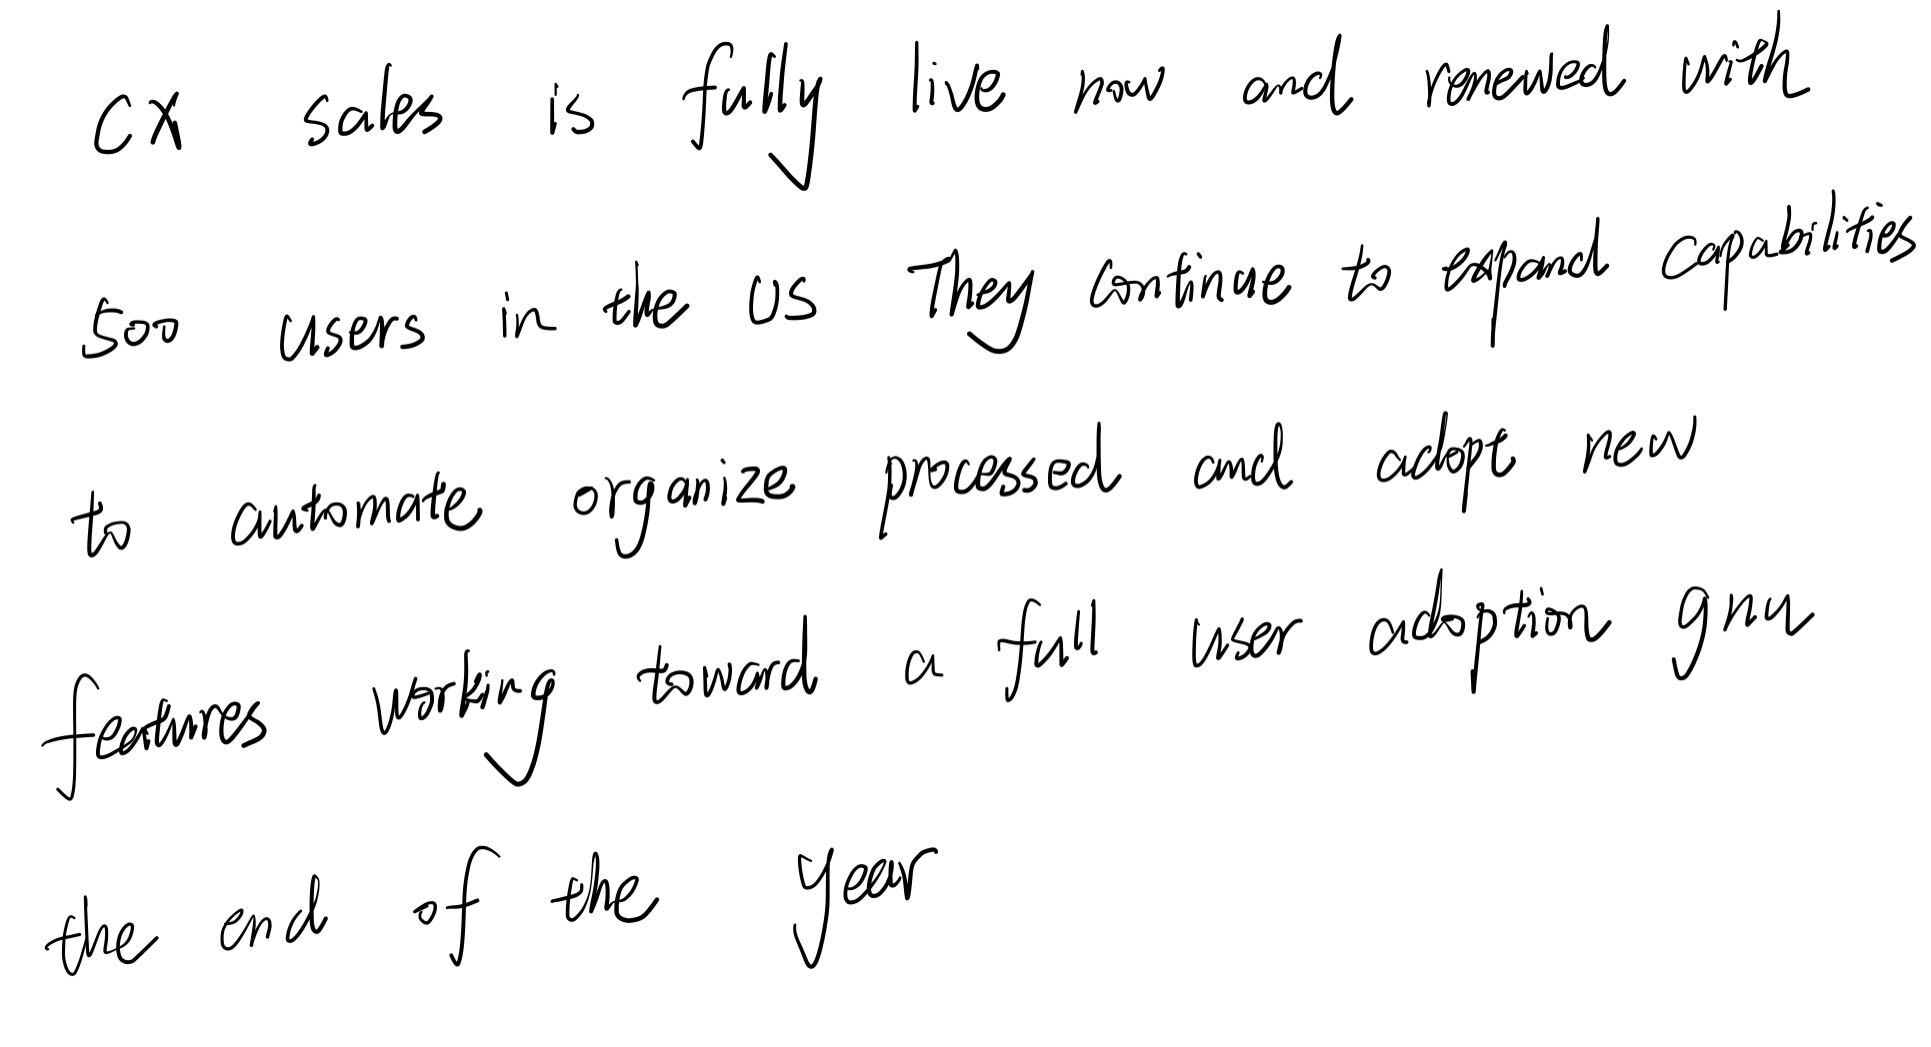 CX sales is fully live now and renewed with
500 users in the US They continue to expand capabilities
to automate organize processed and adopt new
features working toward a full user adoption gnu
the end of the year